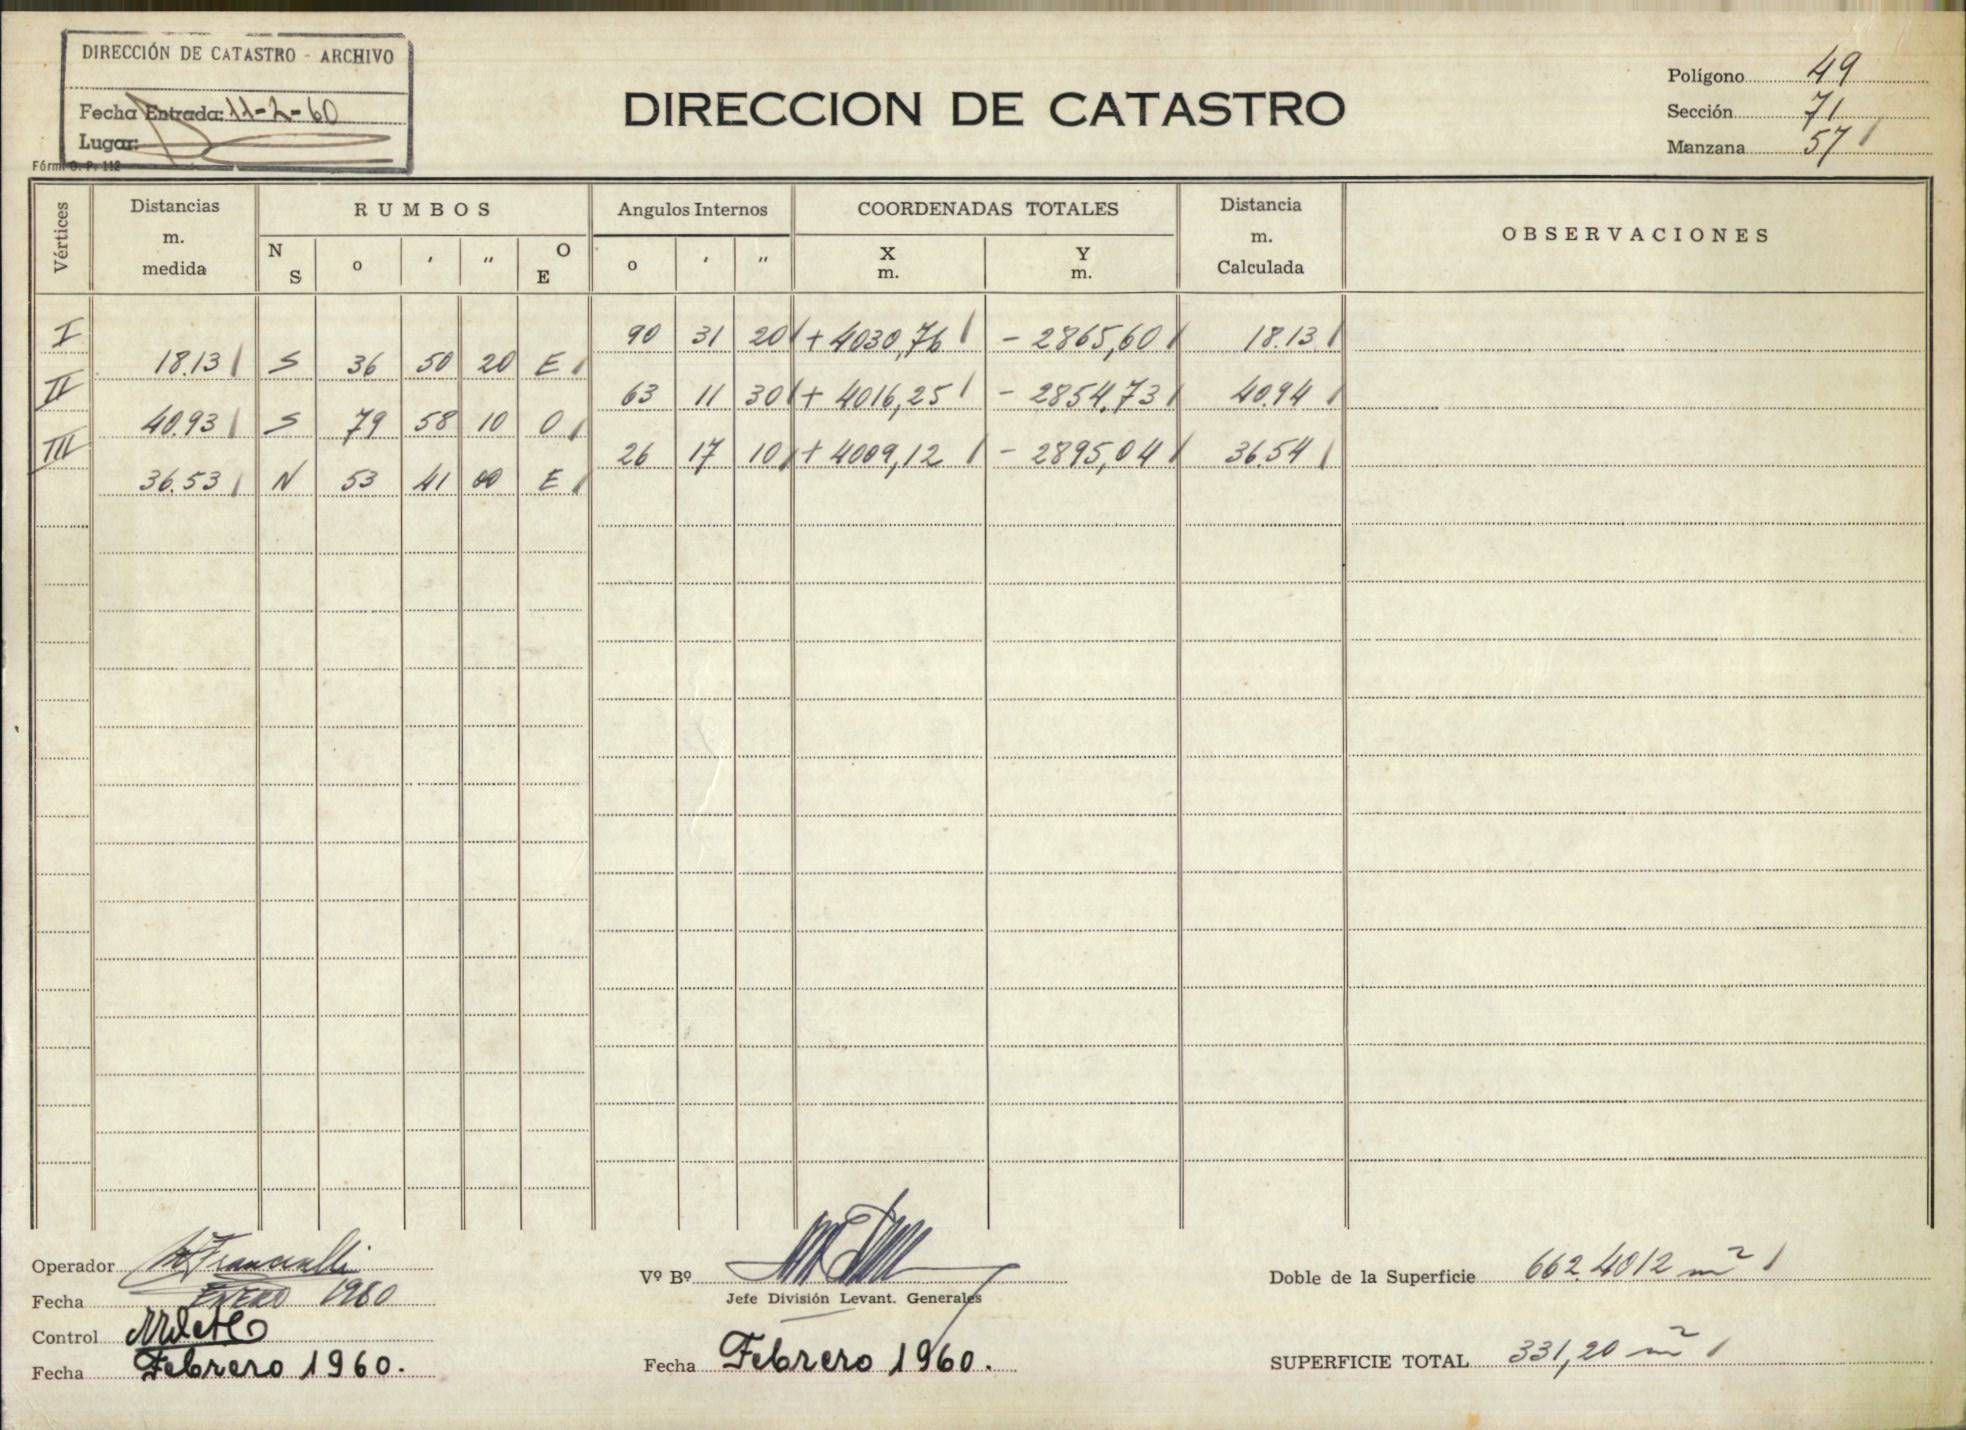 DIRECCIÓN DE CATASTRO - ARCHIVO
Fecha Entrada: 11-2-60
Lugar:
Fórm. O. P. 112
DIRECCION DE CATASTRO
Polígono 49
Sección 71
Manzana 57
Vértices
Distancias m. medida
RUMBOS
N S o ' " O E
Angulos Internos
o ' "
COORDENADAS TOTALES
X m. Y m.
Distancia m. Calculada
OBSERVACIONES
I 90 31 20 + 4030,76 - 2865,60 18.13
18.13 S 36 50 20 E
II 63 11 30 + 4016,25 - 2854,73 40.94
40.93 S 79 58 10 O
III 26 17 10 + 4009,12 - 2895,04 36.54
36.53 N 53 41 00 E
Operador
Fecha ENERO 1960
Control
Fecha Febrero 1960.
Vº Bº
Jefe División Levant. Generales
Fecha Febrero 1960.
Doble de la Superficie 662.4012 m²
SUPERFICIE TOTAL 331,20 m²